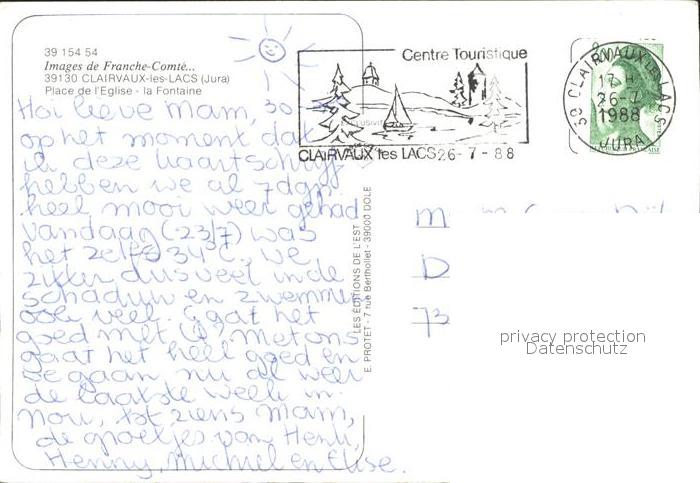 39 154 54
Images de Franche-Comté...
39130 CLAIRVAUX-les-LACS (Jura)
Place de l'Eglise - la Fontaine
Hoi lieve Mam, zo
op het moment dat
ik deze kaart schrijf
hebben we al 7 dgn
heel mooi weer gehad
vandaag (23/7) was
het zelfs 34°C. We
zitten dus veel in de
schaduw en zwemmen
ook veel. Gaat het
goed met U, met ons
gaat het heel goed en
we gaan nu al weer
de laatste week in.
Nou, tot ziens Mam,
de groetjes van Henk,
Henny, Michiel en Elise.
LES ÉDITIONS DE L'EST
E. PROTET - 7 rue Berthollet - 39000 DOLE
Centre Touristique
CLAIRVAUX les LACS 26-7-88
39 CLAIRVAUX-LES-LACS
17 H
26-7
1988
JURA
M
D
73
privacy protection
Datenschutz